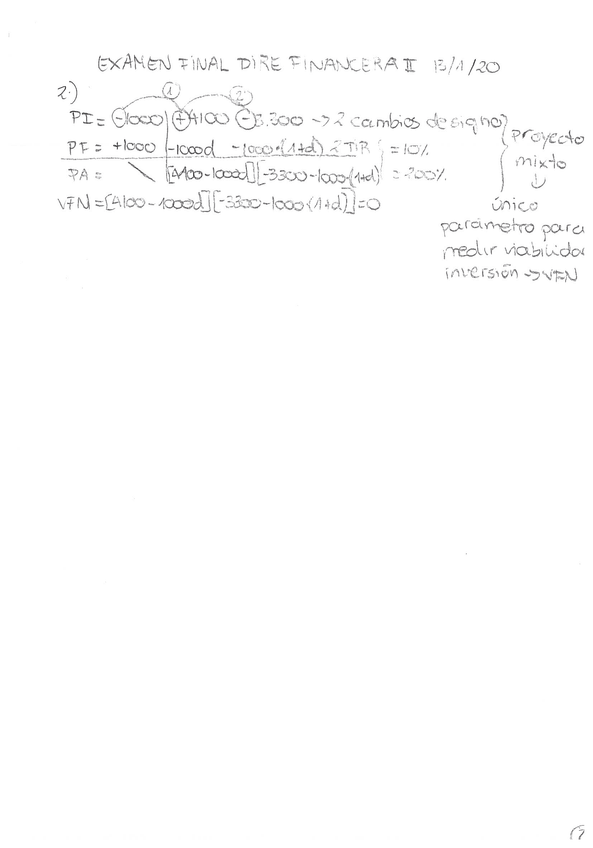 EXAMEN FINAL DIRE FINANCERA II 13/1/20
2.)
① ②
PI = -1000 +4100 -3.300 -> 2 cambios de signo
PF = +1000 -1000d -1000·(1+d) 2 TIR = 10%
PA = \ [4100-1000d][-3300-1000·(1+d)] = 200%
VFN = [4100-1000d][-3300-1000·(1+d)]=0
Proyecto
mixto
↓
único
parámetro para
medir viabilidad
inversión -> VFN